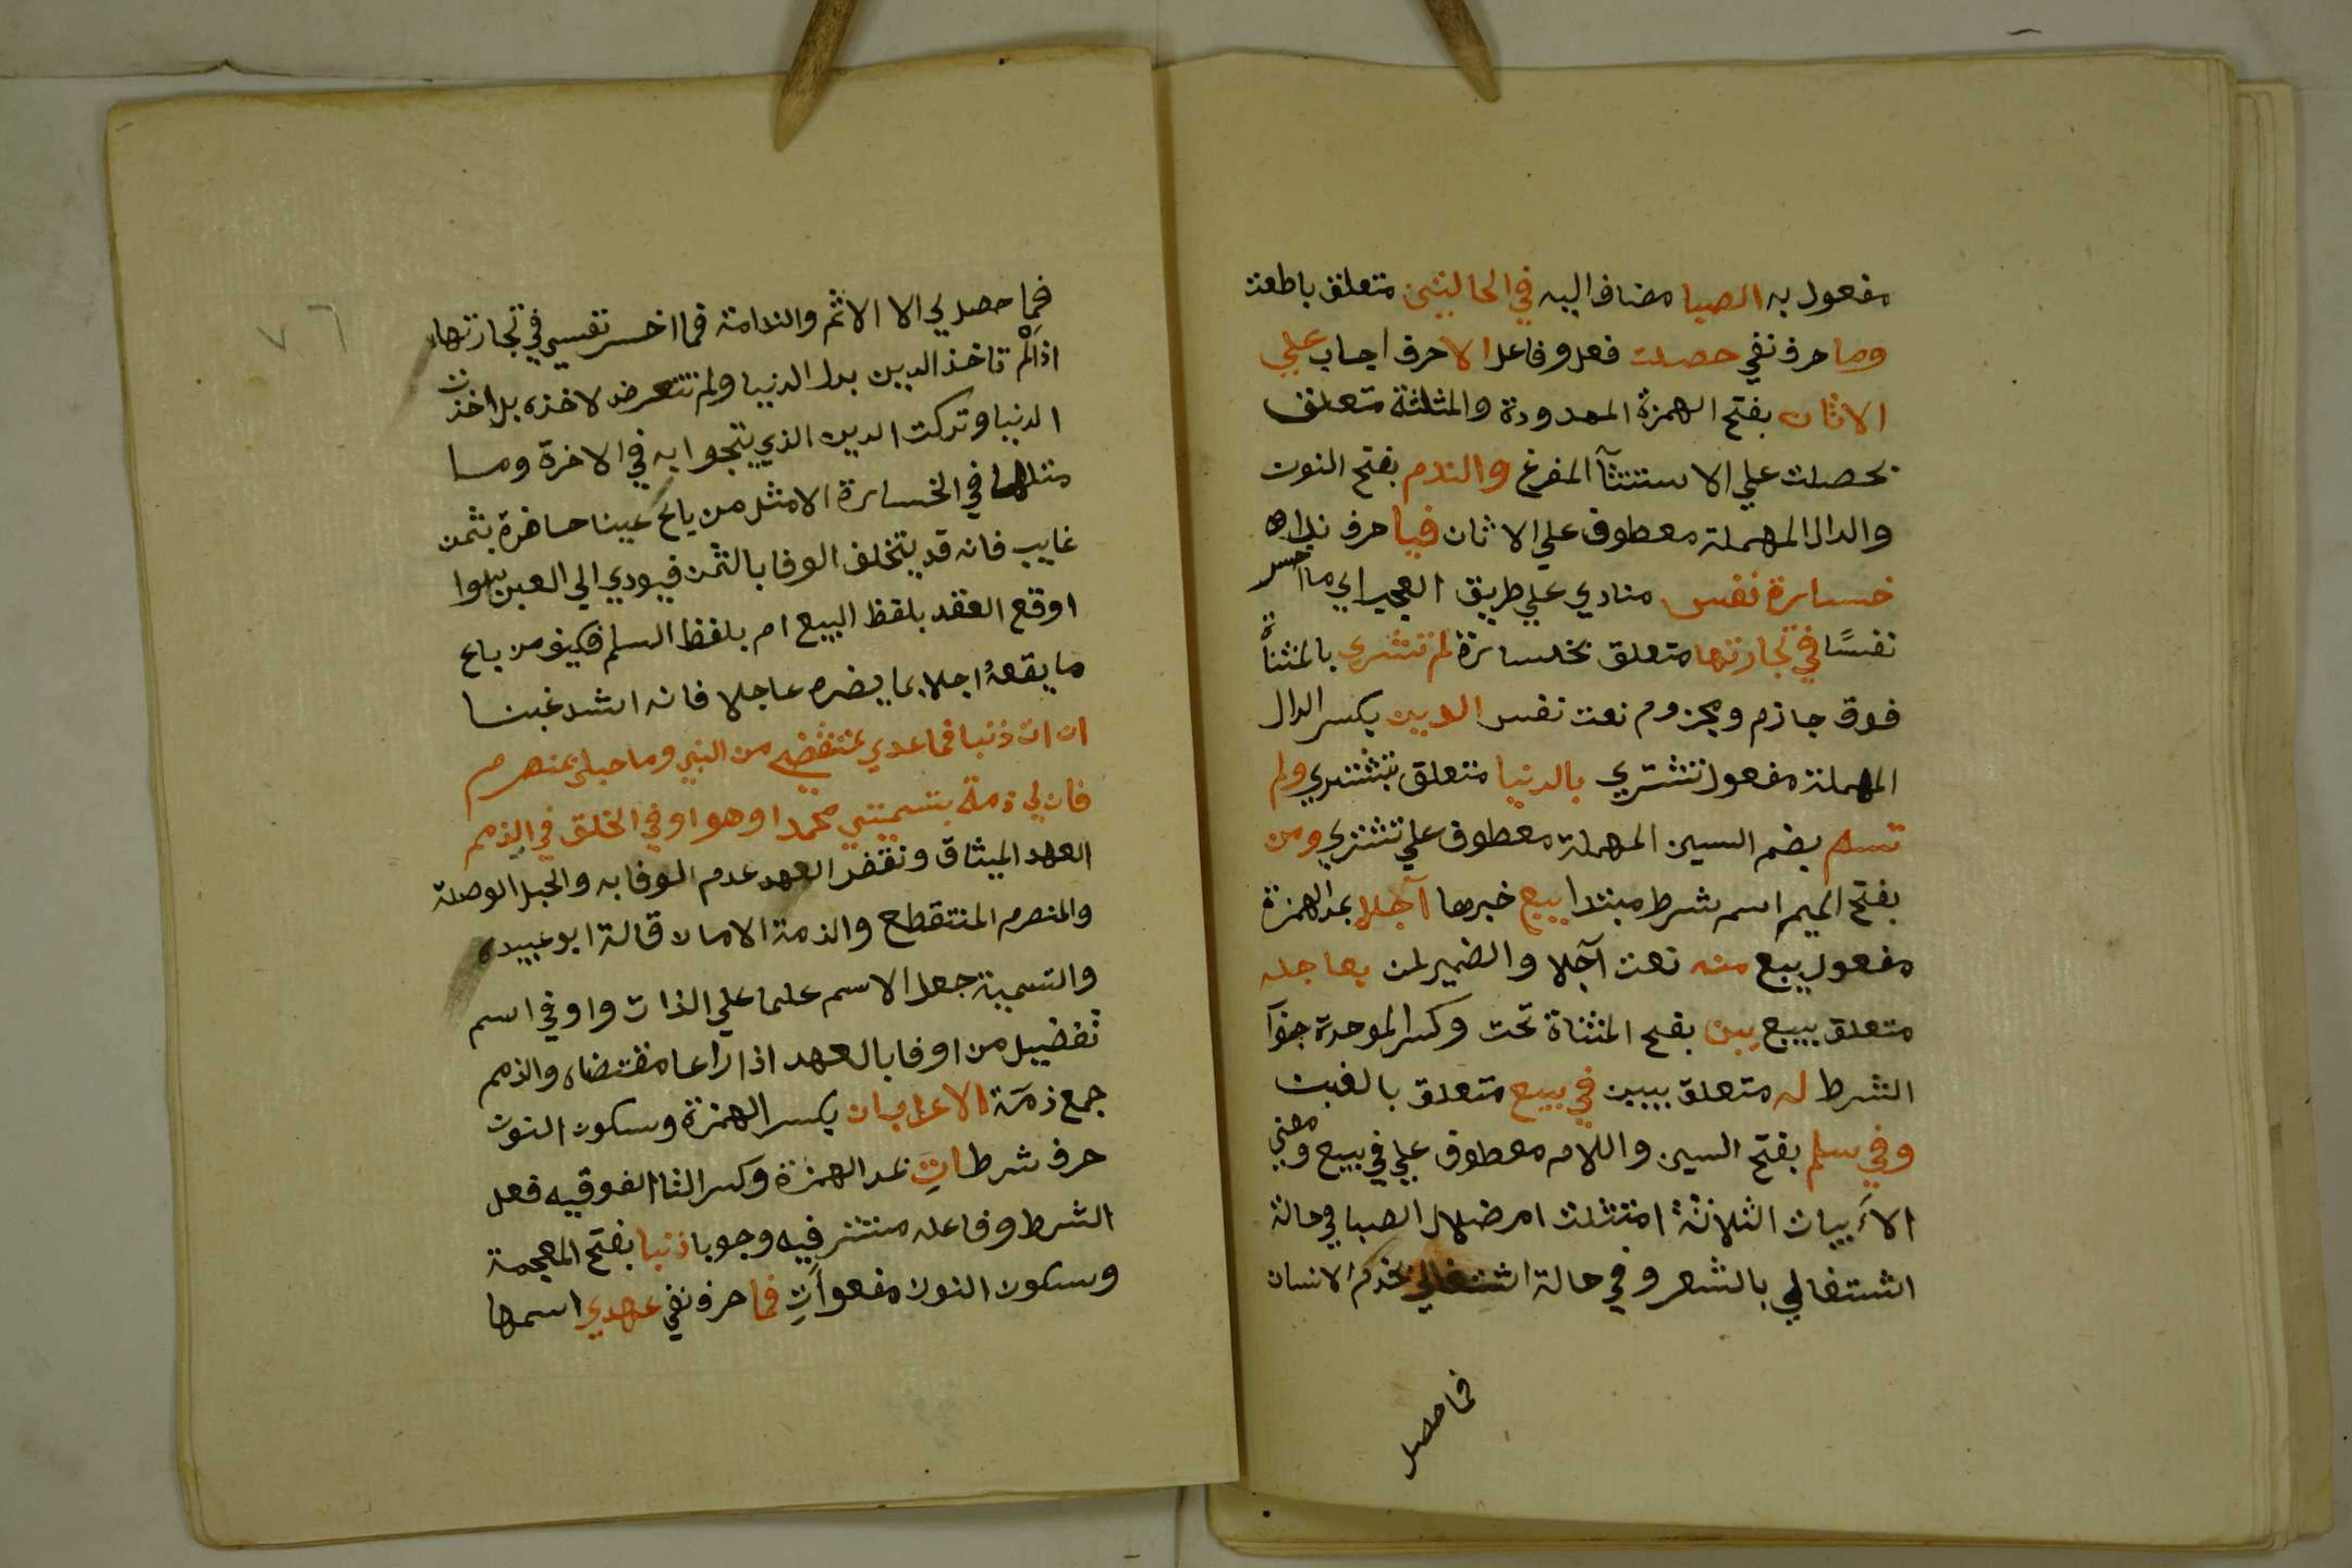 مفعول به الصبا مضاف اليه في الحالتين متعلق باطعت
وما حرف نفي حصلت فعل وفاعل الا حرف ايجاب علي
الاثام بفتح الهمزة الممدودة والمثلثة متعلق
بحصلت علي الاستثنآ المفرغ والندم بفتح النون
والدال المهملة معطوف علي الاثام فيا حرف نداء
خسارة نفس منادي علي طريق التعجب اي ما اخسر
نفسًا في تجارتها متعلق بخسارة لم تشتري بالمثناة
فوق جازم ومجزوم نعت نفس الدين بكسر الدال
المهملة مفعول تشتري بالدنيا متعلق بتشتري ولم
تسم بضم السين المهملة معطوف علي تشتري ومن
بفتح الميم اسم شرط مبتدا يبيع خبرها آجلا بمد الهمزة
مفعول يبيع منه نعت آجلا والضمير لمن بعاجله
متعلق بيبيع يبن بفتح المثناة تحت وكسر الموحدة جوآ
الشرط له متعلق بيبين في بيع متعلق بالغبن
وفي سلم بفتح السين واللام معطوف علي في بيع ومعني
الاَبيات الثلاثة امتثلت امر ضلال الصبا في حالة
اشتغالي بالشعر وفي حالة اشتغالي بخدم الانسان
فما حصل
٧٦
فما حصل لي الا الاثم والندامة فما اخسر نفسي في تجارتها
اذ لم تاخذ الدين بدل الدنيا ولم تتعرض لاخذه بل اخذت
الدنيا وتركت الدين الذي ينجوا به في الاخرة وما
مثلها في الخسارة الا مثل من باع عينا حاضرة بثمن
غايب فانه قد يتخلف الوفا بالثمن فيودي الي الغبن سوا
اوقع العقد بلفظ البيع ام بلفظ السلم فكيف من باع
ما يقعهُ اجلا بما يضره عاجلا فانه اشد غبنا
ان ات ذنبا فما عهدي بمنتقض من النبي وما حبلي بمنصرم
فان لي ذمة بتسميتي محمدا وهو اوفي الخلق في الذمم
العهد الميثاق ونقض العهد عدم الوفا به والحبل الوصلة
والمنصرم المنتقطع والذمة الامان قالة ابو عبيده
والتسمية جعل الاسم علما علي الذات واوفي اسم
تفضيل من اوفا بالعهد اذا راعا مقتضاه والذمم
جمع ذمة الاعراب ان بكسر الهمزة وسكون النون
حرف شرط اتِ بمد الهمزة وكسر التا الفوقيه فعل
الشرط وفاعله مستتر فيه وجوبا ذنبا بفتح المعجمة
وسكون النون مفعول اَتِ فما حرف نفي عهدي اسمها